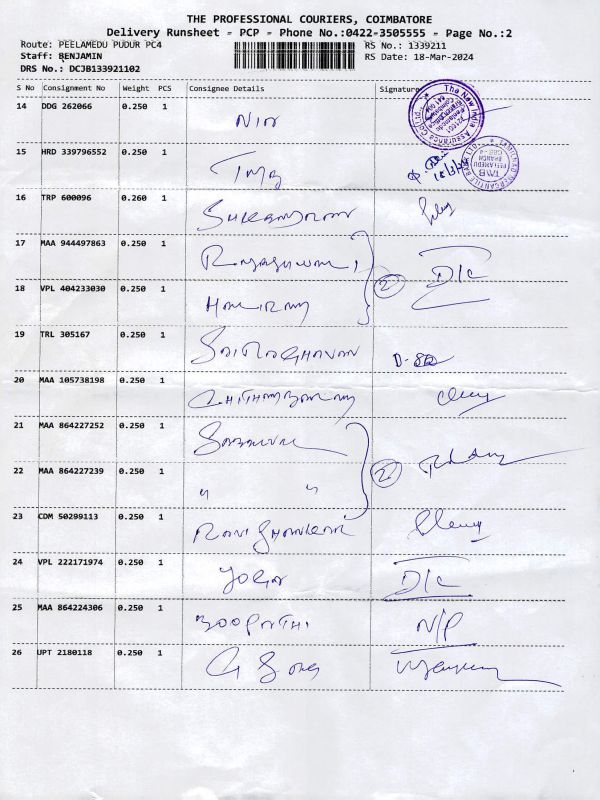 THE PROFESSIONAL COURIERS, COIMBATORE
Delivery Runsheet - PCP - Phone No.:0422-3505555 - Page No.:2
Route: PEELAMEDU PUDUR PC4
RS No.: 1339211
Staff: BENJAMIN
RS Date: 18-Mar-2024
DRS No.: DCJB133921102
S No Consignment No Weight PCS Consignee Details Signature
14 DDG 262066 0.250 1
The New India Assurance Co.
15 HRD 339796552 0.250 1 TMB
TAMILNAD MERCANTILE BANK LTD.
TMB
PEELAMEDU
BRANCH
CBE - 4
16 TRP 600096 0.260 1
17 MAA 944497863 0.250 1 D/C
18 VPL 404233030 0.250 1 2
19 TRL 305167 0.250 1 SAIRAGHAVAN
20 MAA 105738198 0.250 1
21 MAA 864227252 0.250 1
22 MAA 864227239 0.250 1 " " 2
23 CDM 50299113 0.250 1 RAVI SHANKAR
24 VPL 222171974 0.250 1 D/C
25 MAA 864224306 0.250 1 BOOPATHI N/P
26 UPT 2180118 0.250 1